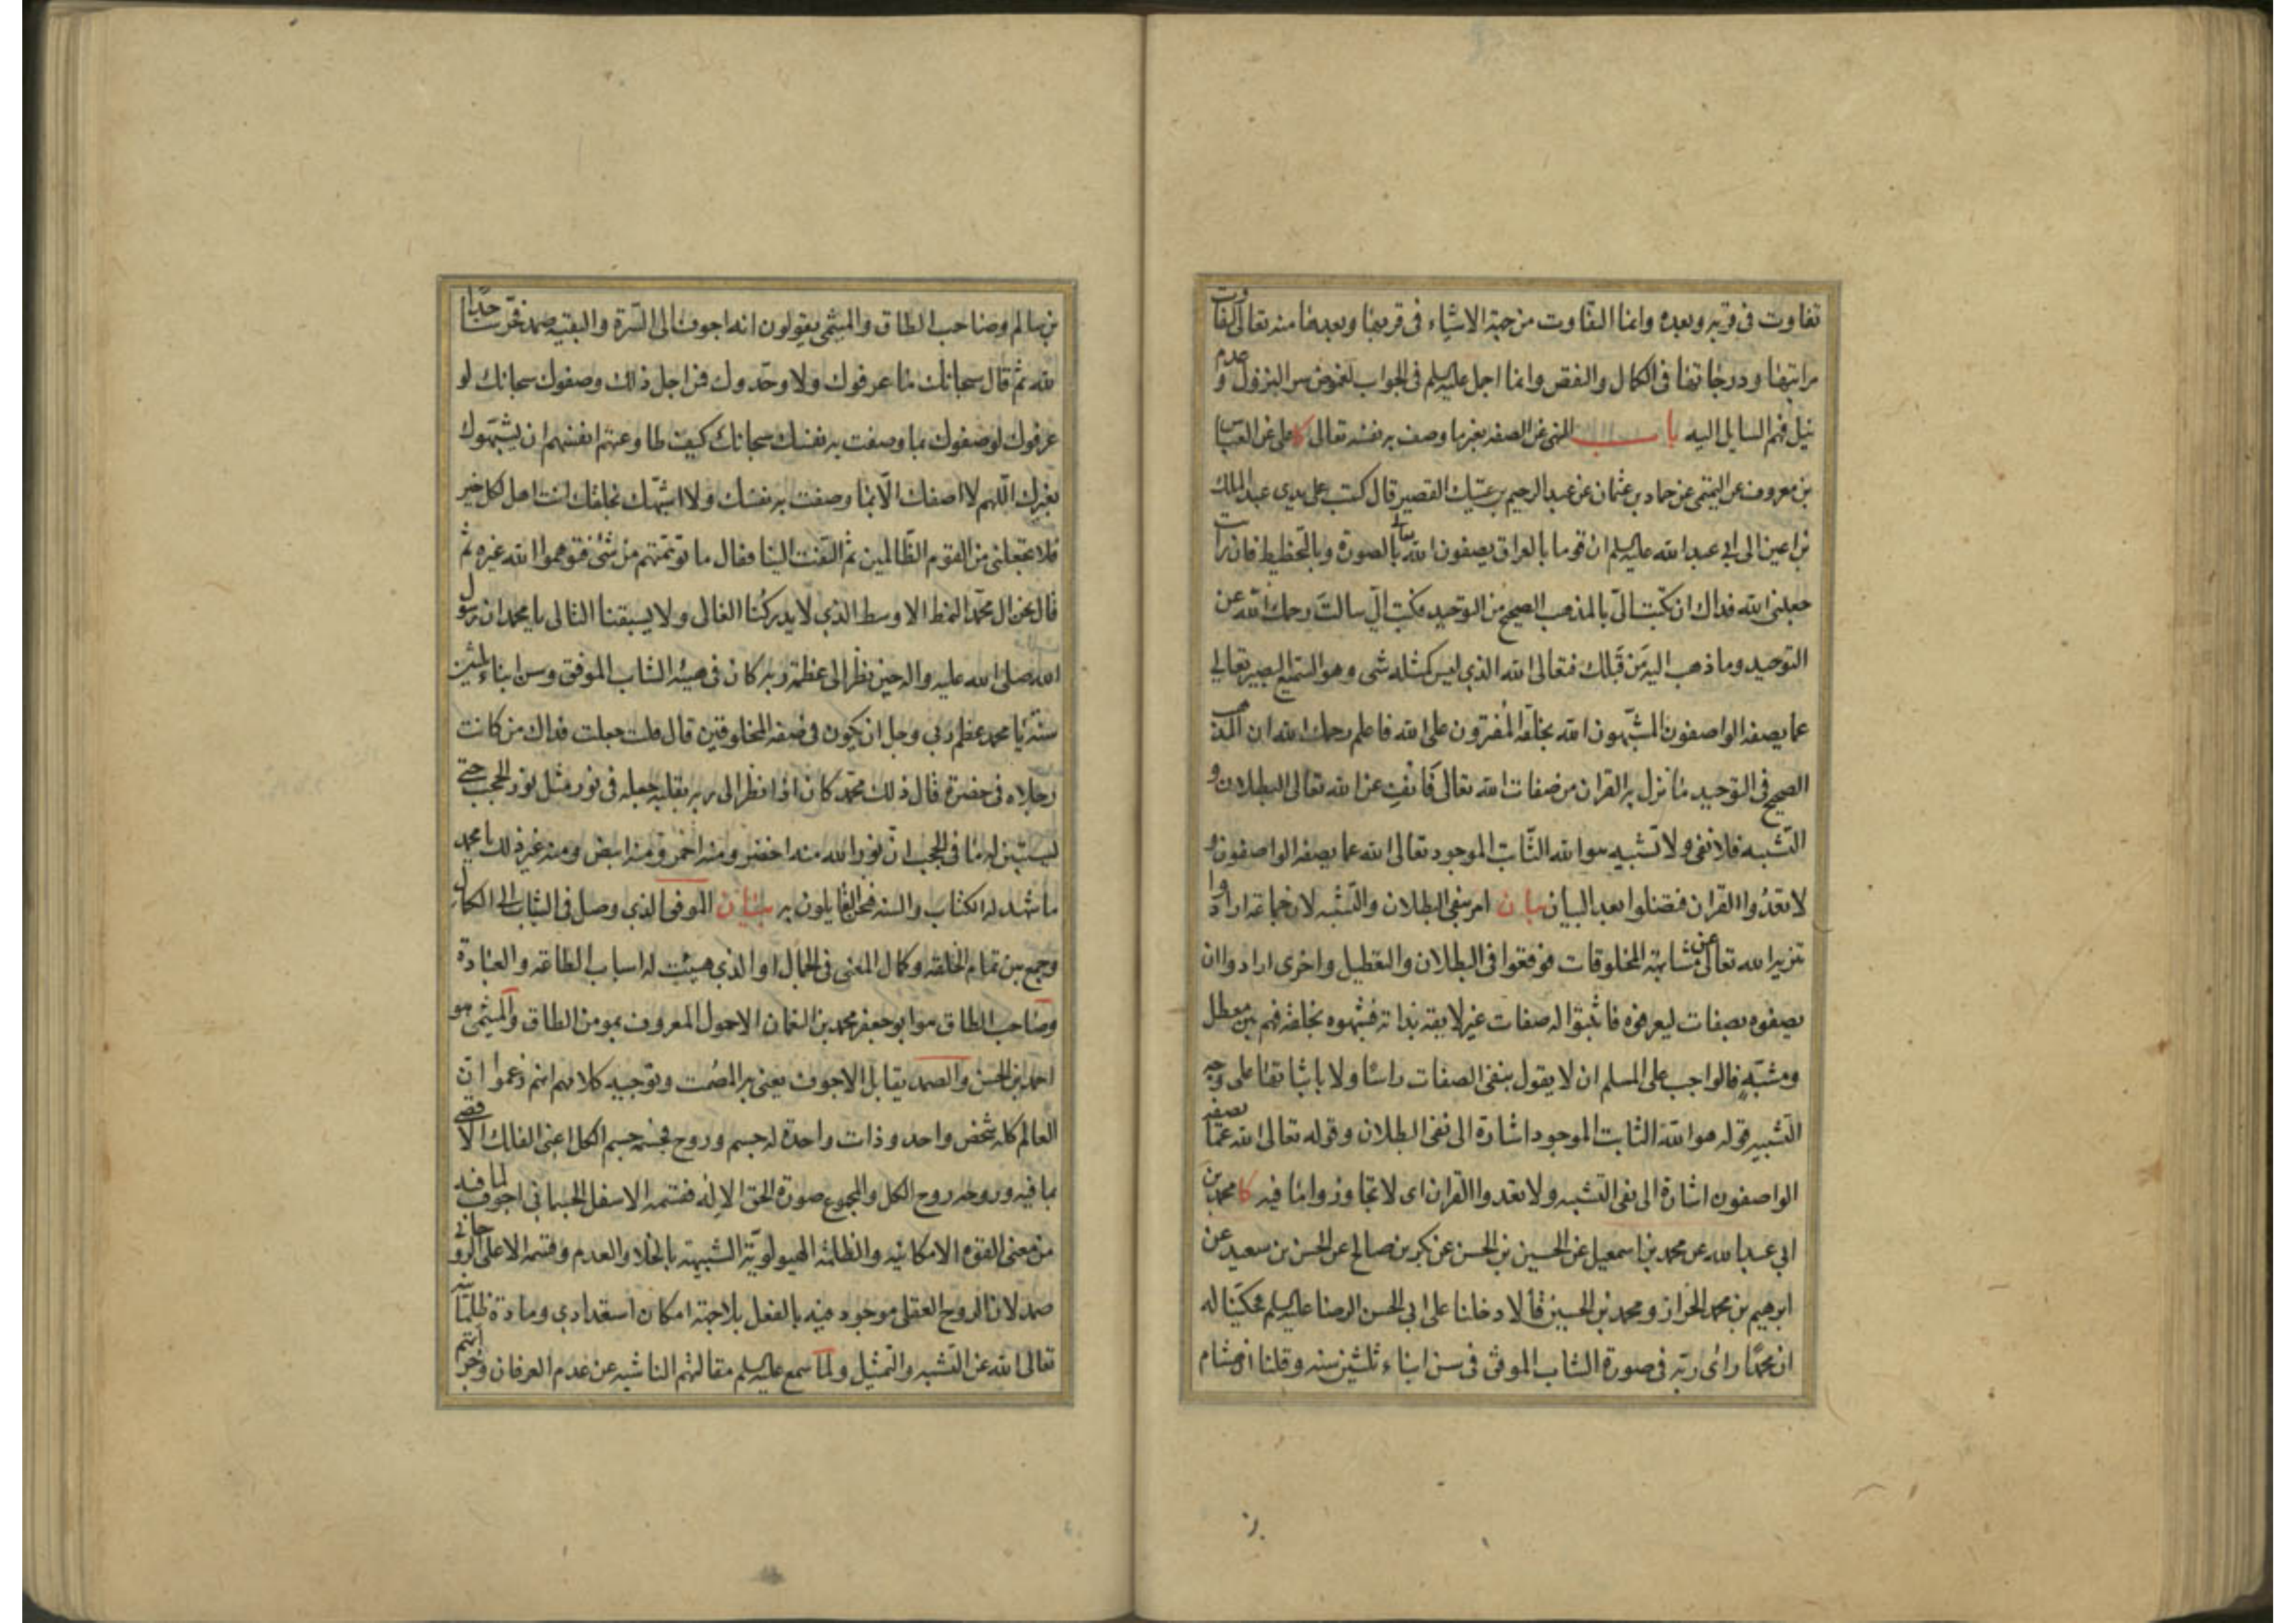 تفاوت في قربه وبعده وانما التفاوت من جهة الاشياء في قربها وبعدها منه تعالى لتفاوت
مراتبها ودرجاتها في الكمال والنقص وانما اجمل عليه السلم في الجواب لغموض سر النزول وعدم
نيل فهم السايل اليه باب النهي عن الصفه بغير ما وصف به نفسه تعالى كا علي عن العباس
بن معروف عن التميمي عن حماد بن عثمان عن عبد الرحيم بن عتيك القصير قال كتب على يدي عبد الملك
بن اعين الى ابي عبد الله عليه السلم ان قوما بالعراق يصفون الله تعالى بالصورة وبالتخطيط فان رات
جعلني الله فداك ان تكتب الي بالمذهب الصحيح من التوحيد فكتب الي سالت رحمك الله عن
التوحيد وما ذهب اليه من قبلك فتعالى الله الذي ليس كمثله شي وهو السميع البصير تعالى
عما يصفه الواصفون المشبهون الله بخلقه المفترون على الله فاعلم رحمك الله ان المذهب
الصحيح في التوحيد ما نزل به القران من صفات الله تعالى فانف عن الله تعالى البطلان و
التشبيه فلا نفي ولا تشبيه هو الله الثابت الموجود تعالى الله عما يصفه الواصفون و
لا تعدوا القران فتضلوا بعد البيان بيان امر بنفي البطلان والتشبه لان جماعة ارادوا
تنزيه الله تعالى عن مشابهة المخلوقات فوقعوا في البطلان والتعطيل واخرى ارادوا ان
يصفوه بصفات ليعرفوه فاثبتوا له صفات غير لايقه بذاته فشبهوه بخلقه فهم بين معطل
ومشبه فالواجب على المسلم ان لا يقول بنفي الصفات راسا ولا باثباتها على وجه
التشبيه قوله هو الله الثابت الموجود اشارة الى نفي البطلان وقوله تعالى الله عما يصفه
الواصفون اشارة الى نفي التشبه ولا تعدوا القران اي لا تجاوزوا ما فيه كا محمد بن
ابي عبد الله عن محمد بن اسمعيل عن الحسين بن الحسن عن بكر بن صالح عن الحسن بن سعيد عن
ابرهيم بن محمد الخزاز ومحمد بن الحسين قالا دخلنا على ابي الحسن الرضا عليه السلم فحكينا له
ان محمدا راى ربه في صورة الشاب الموفق في سن ابناء ثلثين سنه وقلنا ان هشام
بن سالم وصاحب الطاق والميثمي يقولون انه اجوف الى السرة والبقيه صمد فخر ساجدا
لله ثم قال سبحانك ما عرفوك ولا وحدوك فمن اجل ذلك وصفوك سبحانك لو
عرفوك لوصفوك بما وصفت به نفسك سبحانك كيف طاوعتهم انفسهم ان يشبهوك
بغيرك اللهم لا اصفك الا بما وصفت به نفسك ولا اشبهك بخلقك انت اهل لكل خير
فلا تجعلني من القوم الظالمين ثم التفت الينا فقال ما توهمتم من شئ فتوهموا الله غيره ثم
قال نحن ال محمد النمط الاوسط الذي لا يدركنا الغالي ولا يسبقنا التالي يا محمد ان رسول
الله صلى الله عليه واله حين نظر الى عظمة ربه كان في هيئه الشاب الموفق وسن ابناء ثلثين
سنة يا محمد عظم ربي وجل ان يكون في صفه المخلوقين قال قلت جعلت فداك من كانت
رجلاه في خضرة قال ذلك محمد كان اذا نظر الى ربه بقلبه جعله في نور مثل نور الحجب حتى
يستبين له ما في الحجب ان نور الله منه اخضر ومنه احمر ومنه ابيض ومنه غير ذلك يا محمد
ما شهد له الكتاب والسنه فنحن القايلون به بيان الموفق الذي وصل في الشباب الى الكمال
وجمع بين تمام الخلقه وكمال المعنى في الجمال او الذي هيئت له اسباب الطاعه والعبادة
وصاحب الطاق هو ابو جعفر محمد بن النعمان الاحول المعروف بمومن الطاق والميثمي هو
احمد بن الحسن والصمد يقابل الاجوف يعني به المصمت وتوجيه كلامهم انهم زعموا ان
العالم كله شخص واحد وذات واحدة له جسم وروح فجسمه جسم الكل اعني الفلك الاقصى
بما فيه وروحه روح الكل والمجموع صورة الحق الاله فقسمه الاسفل الجسماني اجوف لما فيه
من معنى القوه الامكانيه والظلمه الهيولويه الشبيهه بالخلاء والعدم وقسمه الاعلى الروحاني
صمد لان الروح العقلي موجود فيه بالفعل بلا جهة امكان استعدادي ومادة ظلمانيه
تعالى الله عن التشبه والتمثيل ولما سمع عليه السلم مقالتهم الناشيه عن عدم العرفان وجراتهم